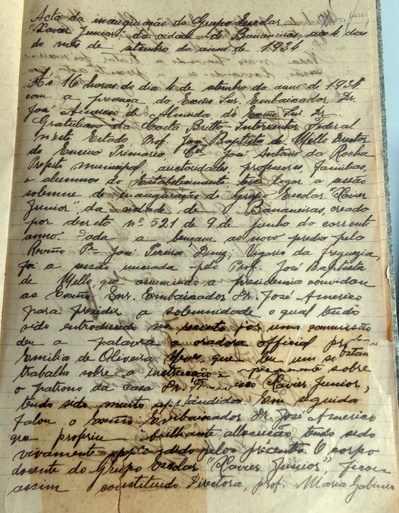 Acta da inauguração do Grupo Escolar
"Xavier Junior" da cidade de Bananeiras, aos 4 dias
do mês de setembro do anno de 1934
As 16 horas do dia 4 de setembro do anno de 1934
com a presença do Exmo Snr. Embaixador Dr.
José Americo de Almeida do Exmo Snr. Dr.
Gratuliano da Costa Britto Interventor Federal
neste Estado Prof. José Baptista de Mello Director
do Ensino Primario Cel José Antonio da Rocha
Prefeito municipal auctoridades professores familias
e alumnos Estabelecimento teve logar a sessão
solemne de inauguração do Grupo Escolar "Xavier
Junior" da cidade de Bananeiras creado
por decreto nº 521 de 9 de junho do corrent
anno. Dada a bençam ao novo predio pelo
Revmo Pe José Pereira Diniz, Vigario da freguezia
foi a sessão iniciada pelo Prof. José Baptista
de Mello que annuncindo a presidencia convidou
ao Exmo Snr. Embaixador Dr. José Americo
para presidir a solemnidade o qual tendo
sido introduzido no recinto por uma commissão
deu a palavra a oradora official
Emilia de Oliveira Neves, que leu um
trabalho sobre a instrucção e sobre
o patrono da casa Dr. Xavier Junior,
tendo sido muito applaudida. Em seguida
falou o Exmo Embaixador Dr. José Americo
que proferiu brilhante allocução tendo sido
vivamente applaudido pelos presentes. O corpo
docente do Grupo Escolar "Xavier Junior", ficou
assim constituido Directora, prof. Maria